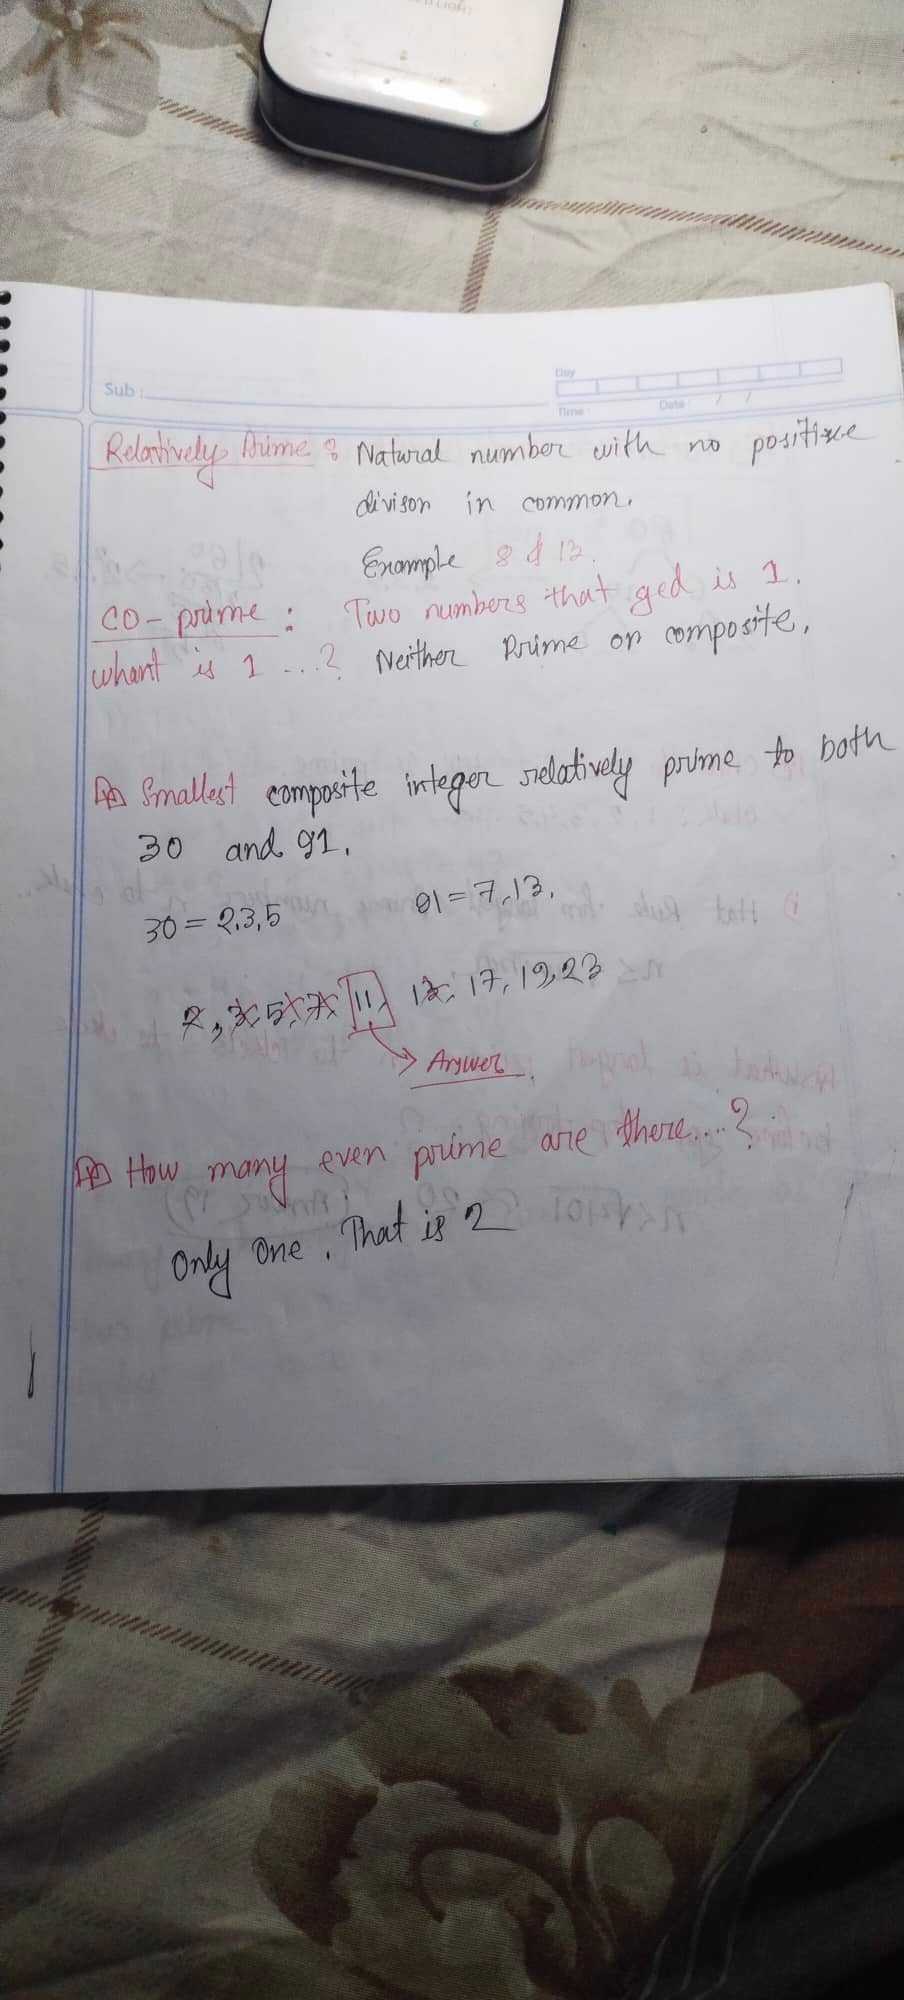 Sub :
Day
Time :
Date : / /
Relatively Prime : Natural number with no positive
divison in common.
Example 8 & 13.
CO-prime : Two numbers that gcd is 1.
whant is 1 ...? Neither Prime or composite.
Smallest composite integer relatively prime to both
30 and 91.
30 = 2,3,5 91 = 7,13.
2, 3, 5, 7, 11, 13, 17, 19, 23
Answer
How many even prime are there....?
Only One. That is 2